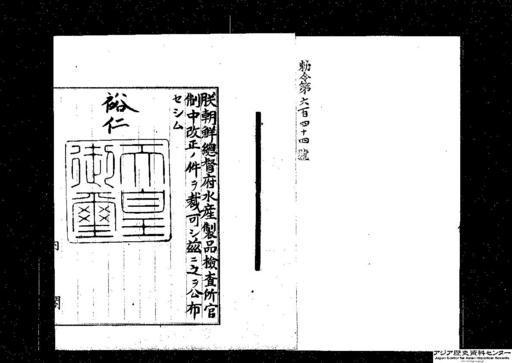 勅令第六百四十四號
朕朝鮮總督府水産製品檢査所官
制中改正ノ件ヲ裁可シ茲ニ之ヲ公布
セシム
裕仁
天皇
御璽
アジア歴史資料センター
Japan Center for Asian Historical Records